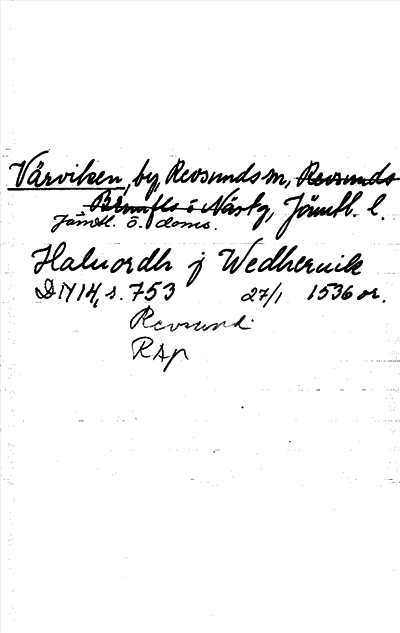 Värviken, by, Revsunds sn, Revsunds
Brunflo o Näsky, Jämtl. l.
Jämtl. ö. doms.
Haluordh j Wedheruik
DN 14, s. 753 27/1 1536 or.
Revsund
RAp